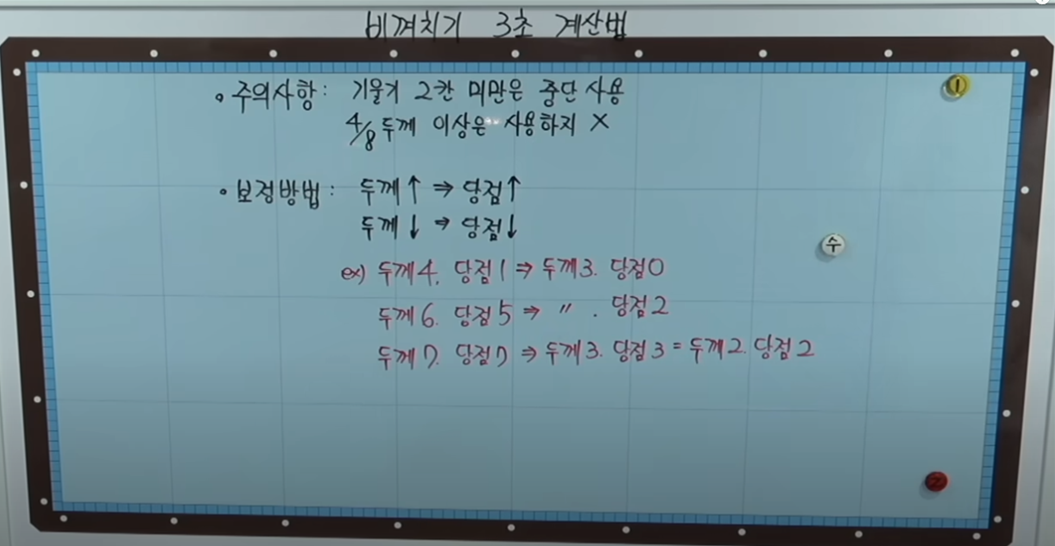 비껴치기 3초 계산법
• 주의사항: 기울기 2칸 미만은 중단 사용
4/8 두께 이상은 사용하지 X
• 보정방법: 두께↑ ⇒ 당점↑
두께↓ ⇒ 당점↓
ex) 두께4, 당점1 ⇒ 두께3. 당점0
두께6. 당점5 ⇒ 〃. 당점2
두께7. 당점7 ⇒ 두께3. 당점3 = 두께2. 당점2
1
수
2